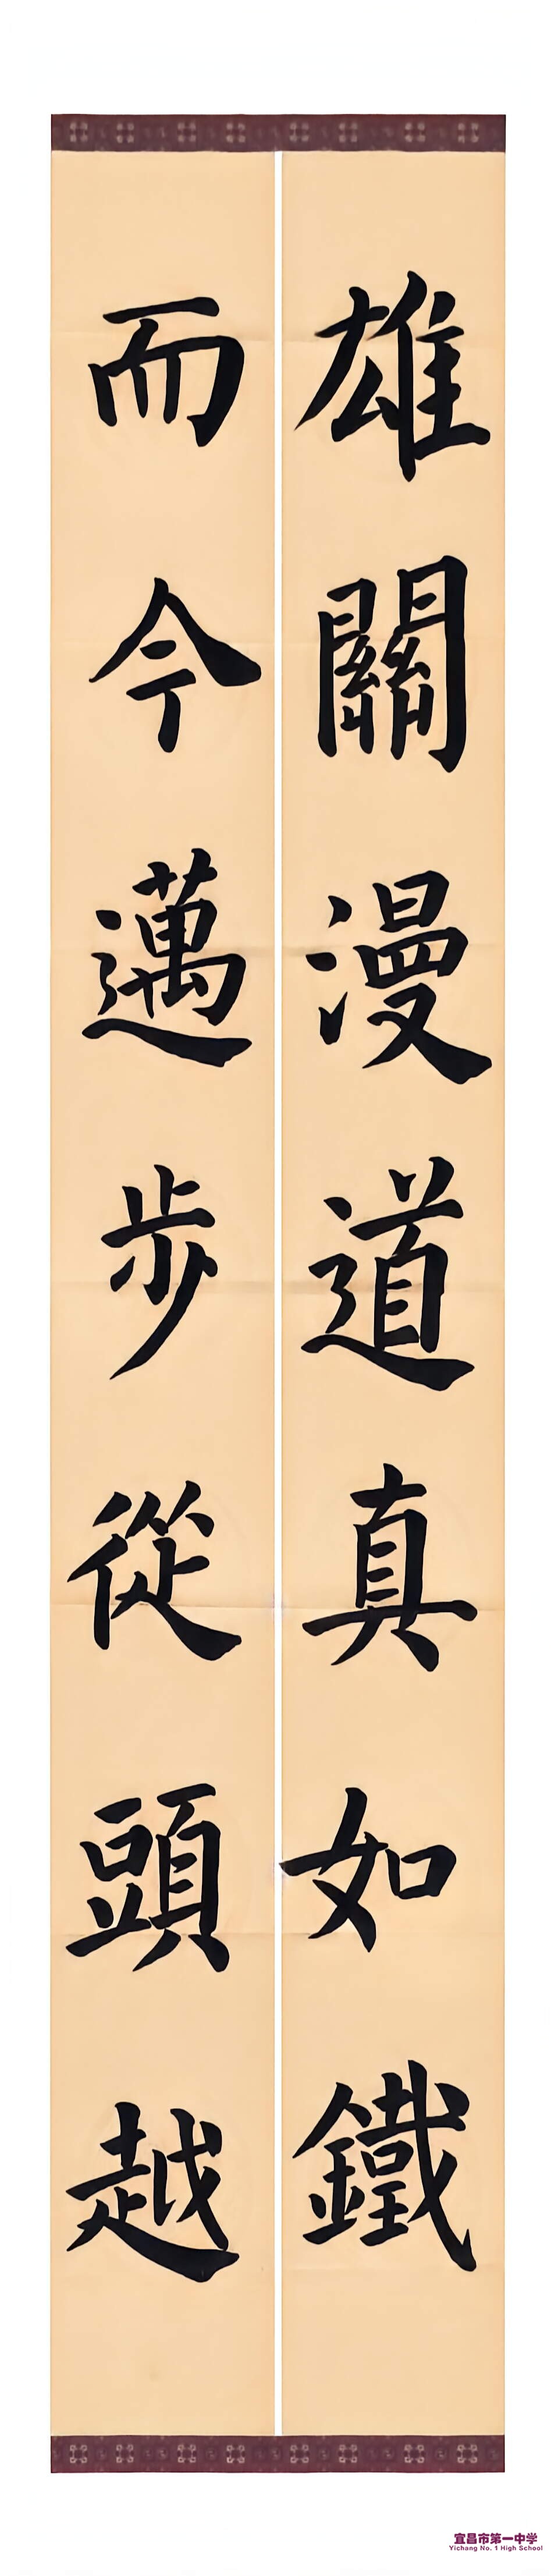 雄關漫道真如鐵
而今邁步從頭越
宜昌市第一中学
Yichang No. 1 High School